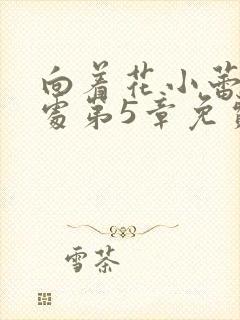 向着花小蕾
处第5章免费
雪茶